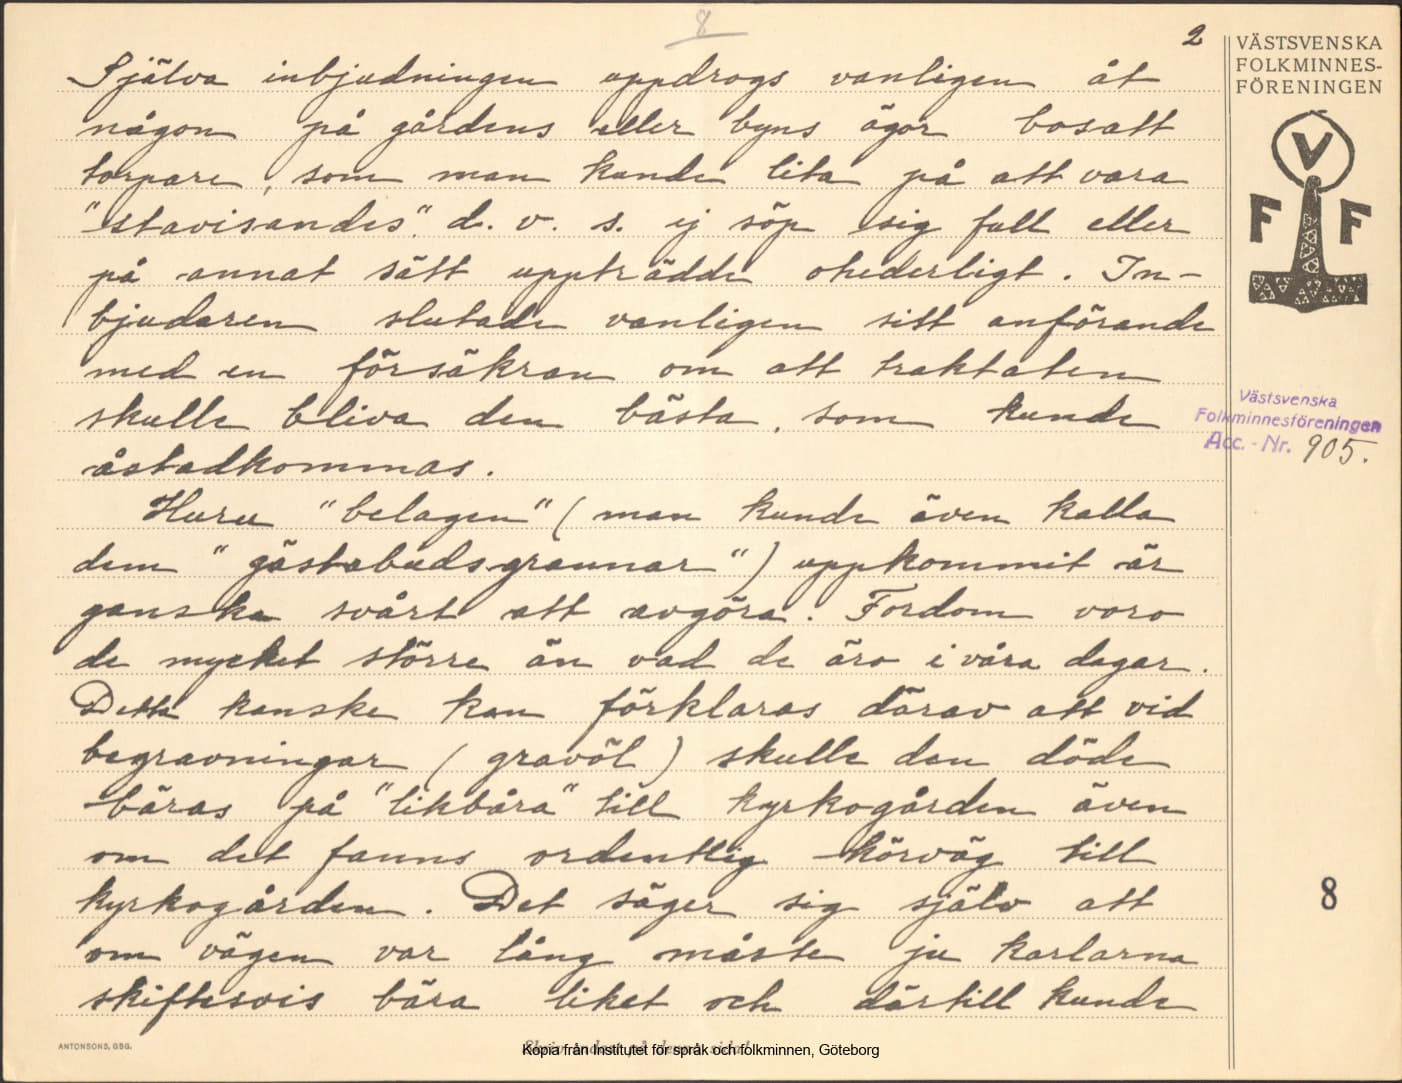 8
2
Själva inbjudningen uppdrogs vanligen åt
någon på gårdens eller byns ägor bosatt
torpare, som man kunde lita på att vara
"stavisandes". d. v. s. ej söp sig full eller
på annat sätt uppträdde ohederligt. In-
bjudaren slutade vanligen sitt anförande
med en försäkran om att traktaten
skulle bliva den bästa, som kunde
åstadkommas.
Huru "belagen" (man kunde även kalla
dem "gästabudsgrannar") uppkommit är
ganska svårt att avgöra. Fordom voro
de mycket större än vad de äro i våra dagar.
Detta kanske kan förklaras därav att vid
begravningar (gravöl) skulle den döde
bäras på "likbåra" till kyrkogården även
om det fanns ordentlig körväg till
kyrkogården. Det säger sig själv att
om vägen var lång måste ju karlarna
skiftesvis bära liket och därtill kunde
VÄSTSVENSKA
FOLKMINNES-
FÖRENINGEN
V
F F
Västsvenska
Folkminnesföreningen
Acc. - Nr. 905.
8
ANTONSONS, GBG.
Kopia från Institutet för språk och folkminnen, Göteborg